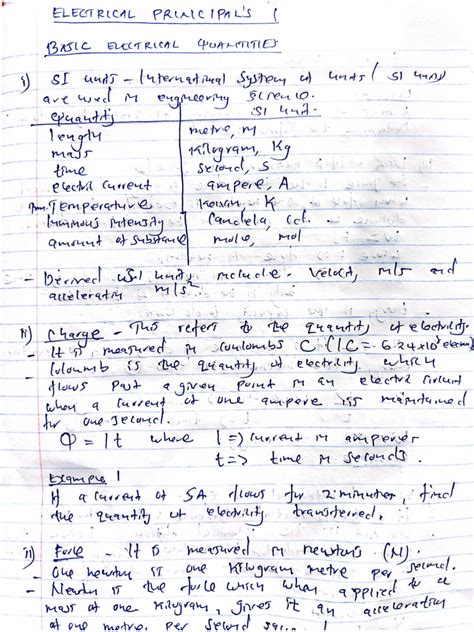 ELECTRICAL PRINCIPAL'S 1
BASIC ELECTRICAL QUANTITIES
i) SI units - International System of units (SI units)
are used in engineering science.
Quantity SI unit.
length metre, m
mass kilogram, Kg
time second, s
electric current ampere, A
Temperature Kelvin, K
luminous intensity Candela, cd.
amount of substance mole, mol
- Derived units include. Velocity, m/s and
acceleration m/s²
ii) Charge - This refers to the quantity of electricity.
- It is measured in coulombs C (1C = 6.24x10
Coloumb is the quantity of electricity which
- flows past a given point in an electric circuit
when a current of one ampere is maintained
for one second.
Q = It where I => current in amperes
t => time in seconds.
Example 1
If a current of 5A flows for 2 minutes, find
the quantity of electricity transferred.
ii) Force - It is measured in newtons (N).
- One newton is one kilogram metre per second.
- Newton is the force which when applied to a
mass of one kilogram, gives it an acceleration
of one metre per second